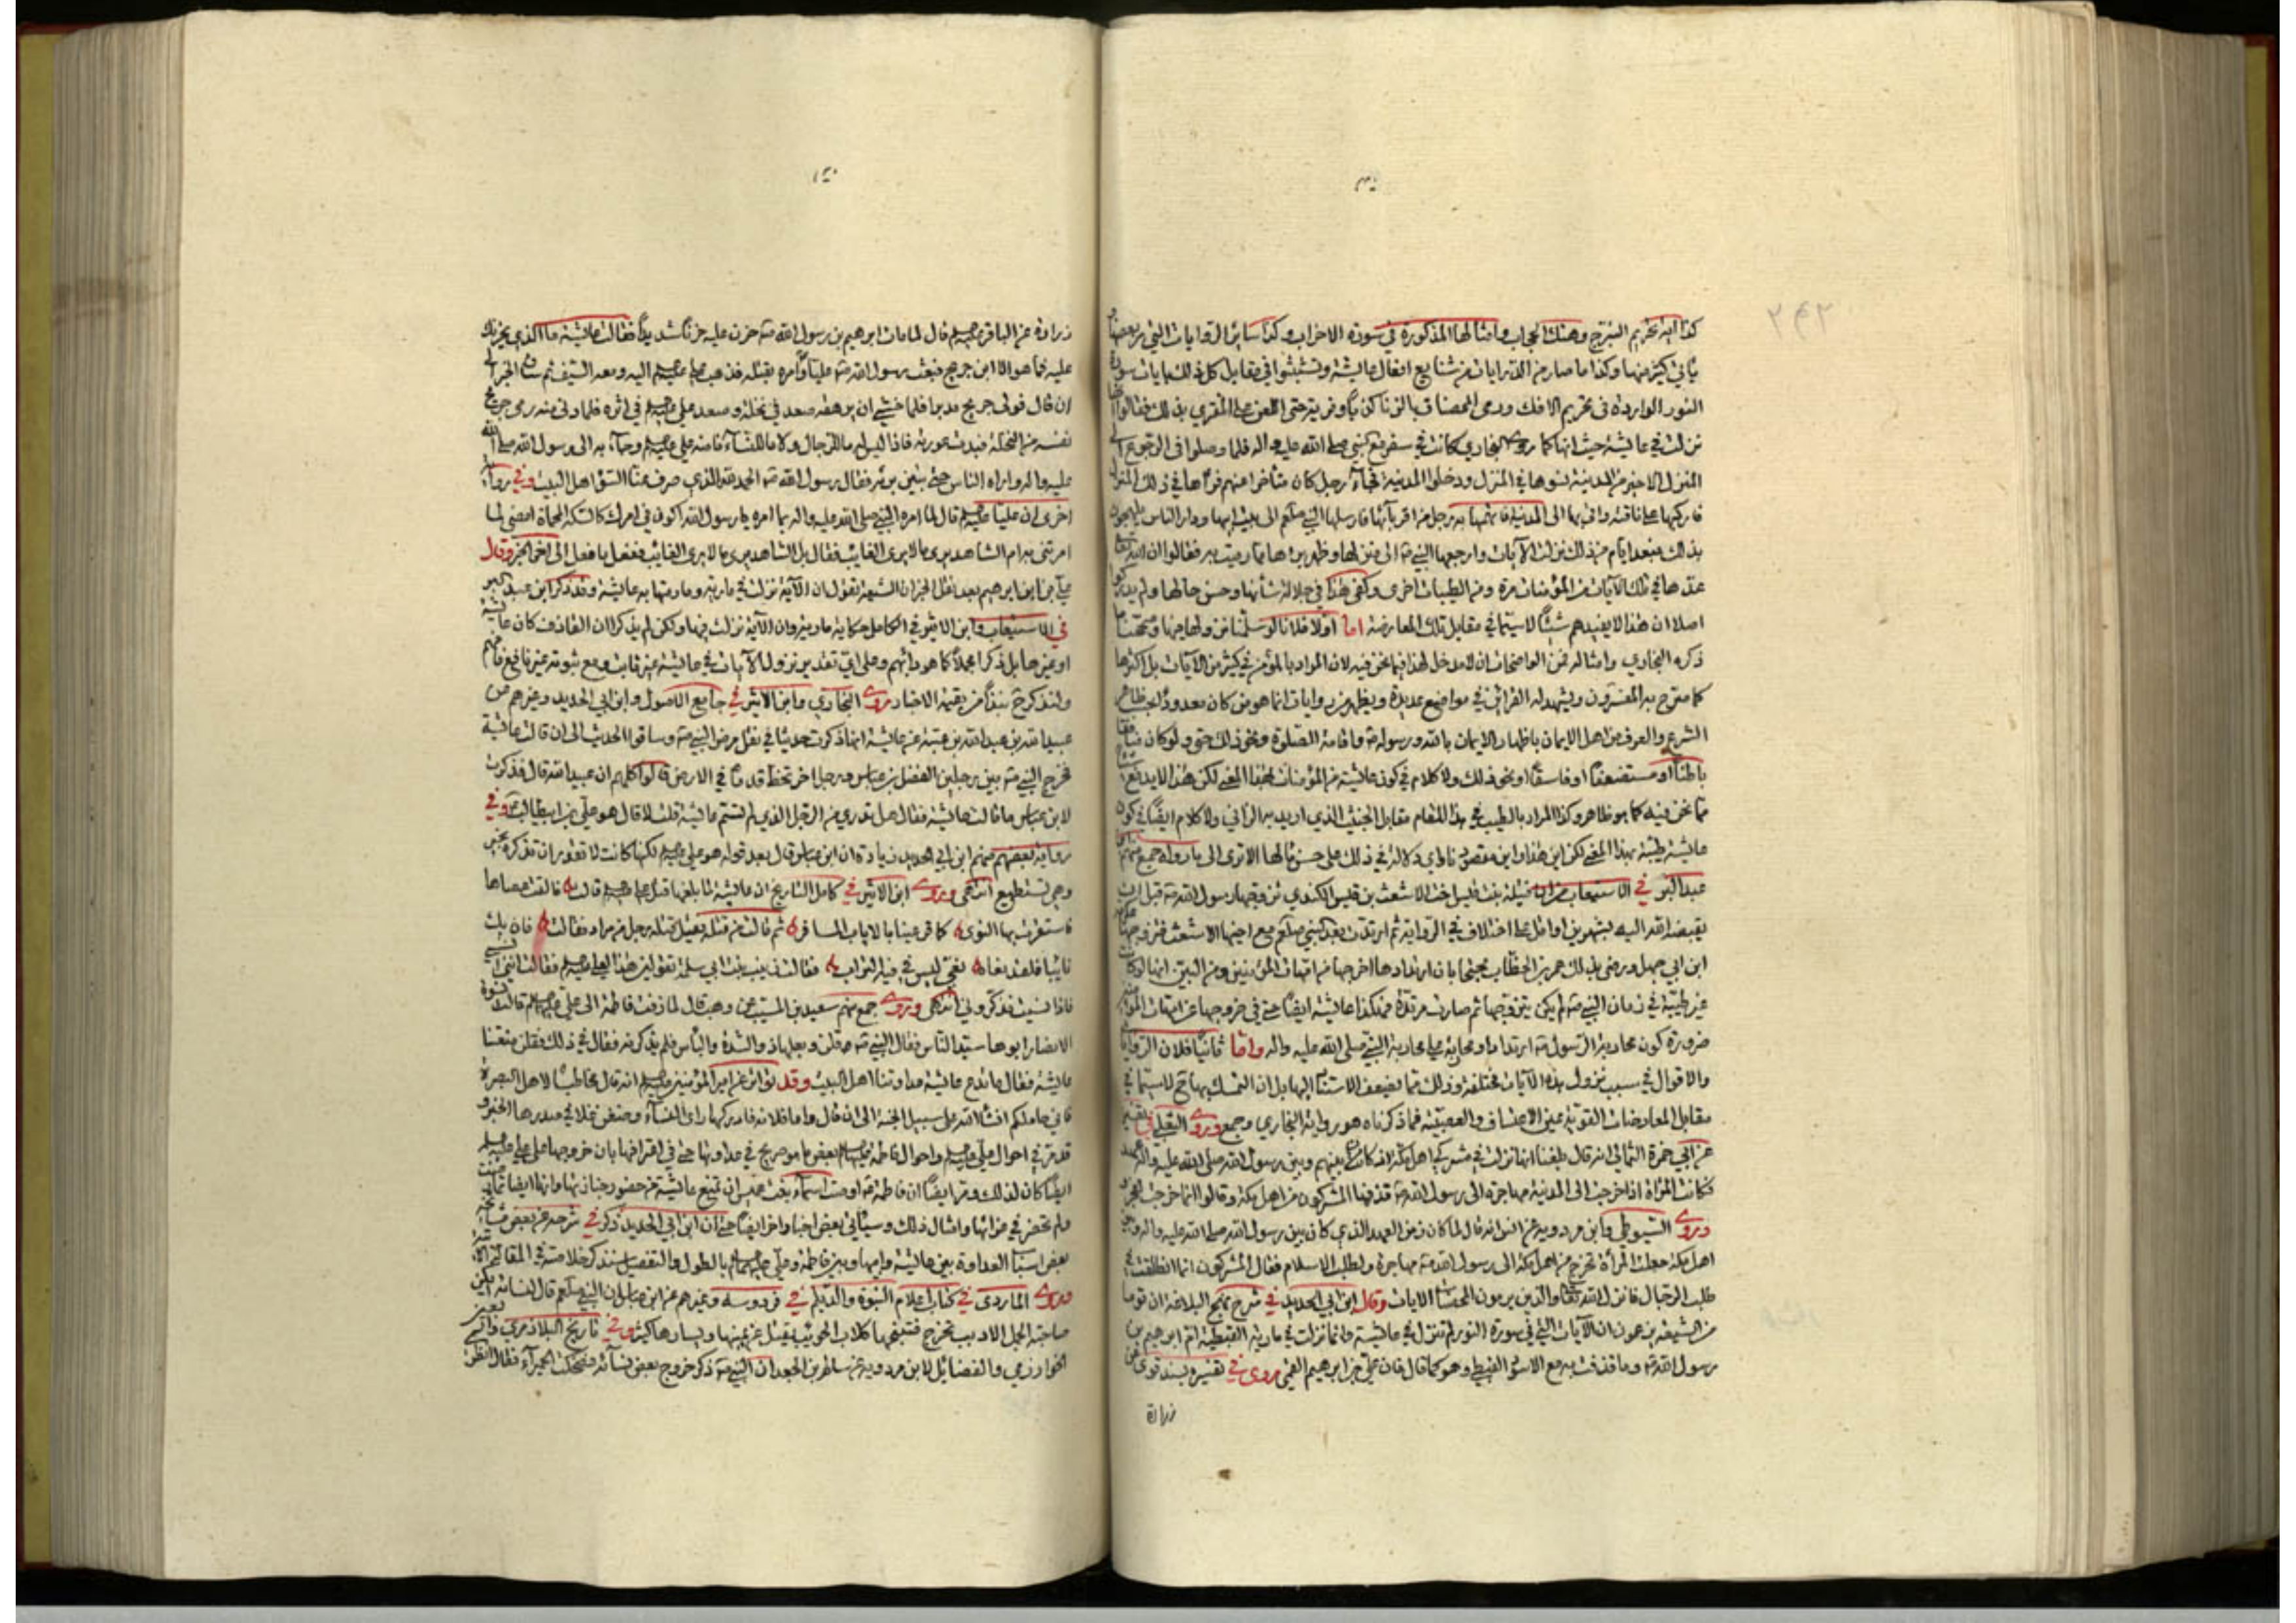 كذا آية تحريم التبرج وهتك الحجاب وامثالها المذكورة في سورة الاحزاب وكذا ساير الروايات التي مر بعضها
يأتي كثير منها وكذا ما صار من الدرايات من شنايع افعال عايشة وتشبثوا في مقابل كل ذلك بآيات سورة
النور الواردة في تحريم الافك ورمي المحصنات بالزنا كذبا وفرية حتى اللعن على المفتري بذلك فقالوا انها
نزلت في عايشة حيث انها كما روى البخاري كانت في سفر مع النبي صلى الله عليه واله فلما وصلوا في الرجوع الى
المنزل الاخير من المدينة نسوها في المنزل ودخلوا المدينة فجاء رجل كان متأخرا عنهم فرآها في ذلك المنزل
فاركبها على ناقته واتى بها الى المدينة فاتهمها به رجل من اقربائها فارسلها النبي صلعم الى بيت ابيها ودار الناس
بذلك فبعد ايام من ذلك نزلت الآيات وارجعها النبي ص الى منزلها وظهر برءها مما رميت به فقالوا ان الله
عدها في تلك الآيات من المؤمنات مرة ومن الطيبات اخرى وكفى هذا في جلالة شأنها وحسن حالها ولم يدركوا
اصلا ان هذا لا يفيدهم شيئا لا سيما في مقابل تلك المعارضة اما اولا فلانا لو سلمنا نزولها فيها وصحة ما
ذكره البخاري وامثاله فمن الواضحات ان لا مدخل لهذا فيما نحن فيه لان المراد بالمؤمن في كثير من الآيات بل اكثرها
كما صرح به المفسرون ويشهد له القرائن في مواضع عديدة ويظهر من روايات انما هو من كان معدودا بحسب ظاهر
الشرع والعرف من اهل الايمان باظهار الايمان بالله ورسوله ص واقامة الصلوة ونحو ذلك حتى ولو كان منافقا
باطنا او مستضعفا او فاسقا او نحو ذلك ولا كلام في كون عايشة من المؤمنات بهذا المعنى لكن هذا لا يدفع شيئا
مما نحن فيه كما هو ظاهر وكذا المراد بالطيب في هذا المقام مقابل الخبيث الذي اريد به الزاني ولا كلام ايضا في كون
عايشة طيبة بهذا المعنى لكن اين هذا واين مقصودنا واي دلالة في ذلك على حسن مآلها الا ترى الى ما رواه جمع منهم ابن
عبد البر في الاستيعاب من ان قتيلة بنت قيس اخت الاشعث بن قيس الكندي تزوجها رسول الله ص قبل ان
يقبضه الله اليه بشهرين او اقل على اختلاف في الرواية ثم ارتدت بعد النبي صلعم مع اخيها الاشعث فتزوجها عكرمة
ابن ابي جهل ورضي بذلك عمر بن الخطاب محتجا بان ارتدادها اخرجها من امهات المؤمنين ومن البين انها لو كانت
غير طيبة في زمان النبي ص لم يكن يتزوجها ثم صارت مرتدة فهكذا عايشة ايضا حتى في خروجها عن امهات المؤمنين
ضرورة كون محاربة الرسول ص ارتدادا ومحاربة علي محاربة النبي صلى الله عليه واله واما ثانيا فلان الروايات
والاقوال في سبب نزول هذه الآيات مختلفة وذلك مما يضعف الاستناد اليها بل ان التمسك بها ح لا سيما في
مقابل المعارضات القوية عين الاعتساف والعصبية فما ذكرناه هو رواية البخاري وجمع وروى الثعلبي في تفسيره
عن ابي حمزة الثمالي انه قال بلغنا انها نزلت في مشركي اهل مكة اذ كان بينهم وبين رسول الله صلى الله عليه واله عهد
فكانت المرأة اذا خرجت الى المدينة مهاجرة الى رسول الله ص قذفها المشركون من اهل مكة وقالوا انما خرجت تفجر
وروى السيوطي وابن مردويه عن انس انه قال لما كان زمن العهد الذي كان بين رسول الله صلى الله عليه واله وبين
اهل مكة جعلت المرأة تخرج من اهل مكة الى رسول الله ص مهاجرة ولطلب الاسلام فقال المشركون انما انطلقت في
طلب الرجال فانزل الله تعالى والذين يرمون المحصنات الآيات وقال ابن ابي الحديد في شرح نهج البلاغة ان قوما
من الشيعة يزعمون ان الآيات التي في سورة النور لم تنزل في عايشة وانما نزلت في مارية القبطية ام ابراهيم بن
رسول الله ص وما قذفت به مع الاسود القبطي وهو كما قال فان علي بن ابراهيم القمي روى في تفسيره بسند قوي عن
زرارة
زرارة عن الباقر عليه السلام قال لما مات ابراهيم بن رسول الله ص حزن عليه حزنا شديدا فقالت عايشة ما الذي يحزنك
عليه فما هو الا ابن جريج فبعث رسول الله ص عليا وامره بقتله فذهب علي عليه السلام اليه ومعه السيف ثم ساق الخبر الى
ان قال فولى جريج مدبرا فلما خشي ان يرهقه صعد في نخلة وصعد علي عليه السلام في اثره فلما دنى منه رمى جريج
نفسه من النخلة فبدت عورته فاذا ليس له ما للرجال ولا ما للنساء فاخذه علي عليه السلام وجاء به الى رسول الله صلى الله
عليه واله واراه الناس حتى تبين برئه فقال رسول الله ص الحمد لله الذي صرف عنا السوء اهل البيت وفي رواية
اخرى ان عليا عليه السلام قال لما امره النبي صلى الله عليه واله بما امره يا رسول الله اكون في امرك كالسكة المحماة امضي لما
امرتني به ام الشاهد يرى ما لا يرى الغائب فقال بل الشاهد يرى ما لا يرى الغائب ففعل ما فعل الى اخر الخبر وقال
علي بن ابراهيم بعد نقل الخبر ان الشيعة تقول ان الآية نزلت في مارية وما رمتها به عايشة وقد ذكر ابن عبد البر
في الاستيعاب وابن الاثير في الكامل حكاية مارية وان الآية نزلت فيها ولكن لم يذكرا ان القاذف كان عايشة
او غيرها بل ذكرا مجملا كما هو دأبهم وعلى اي تقدير نزول الآيات في عايشة غير ثابت ومع ثبوته غير نافع فافهم
ولنذكر ح نبذا من بقية الاخبار روى البخاري وابن الاثير في جامع الاصول وابن ابي الحديد وغيرهم عن
عبيد الله بن عبد الله بن عتبة عن عايشة انها ذكرت حديثا في نقل مرض النبي ص وساقوا الحديث الى ان قالت عايشة
فخرج النبي ص بين رجلين الفضل بن عباس ورجل اخر تخط قدماه في الارض قالوا كلهم ان عبيد الله قال فذكرت
لابن عباس ما قالت عايشة فقال هل تدري من الرجل الذي لم تسم عايشة قلت لا قال هو علي بن ابيطالب وفي
رواية بعضهم منهم ابن ابي الحديد زيادة ان ابن عباس قال بعد قوله هو علي عليه السلام لكنها كانت لا تقدر ان تذكره بخير
وهي تستطيع انتهى وروى ابن الاثير في كامل التاريخ ان عايشة لما بلغها قتل علي عليه السلام قالت فالقت عصاها
فاستقرت بها النوى كما قر عينا بالاياب المسافر ثم قالت من قتله فقيل قتله رجل من مراد فقالت فان يك
نائيا فلقد نعاه نعي ليس في فيه التراب فقالت زينب بنت ابي سلمة تقولين هذا لعلي عليه السلام فقالت انني انسى
فاذا نسيت فذكروني انتهى وروى جمع منهم سعيد بن المسيب عن وهب قال لما زفت فاطمة الى علي عليه السلام قالت نسوة
الانصار ابوها سيد الناس فقال النبي ص قلن وبعلها ذو الشدة والبأس فلم يذكرنه فقال في ذلك فقلن منعتنا
عايشة فقال ما تدع عايشة عداوتنا اهل البيت وقد تواتر عن امير المؤمنين عليه السلام انه قال مخاطبا لاهل البصرة
فاني حاملكم انشاء الله على سبيل الجنة الى ان قال واما فلانة فادركها رأي النساء وضغن غلا في صدرها الخبر و
قد مر في احوال علي عليه السلام واحوال فاطمة عليها السلام بعض ما هو صريح في عداوتها حتى في اقرافها بان خروجها على علي عليه السلام
ايضا كان لذلك ومر ايضا ان فاطمة ص اوصت اسماء بنت عميس ان تمنع عايشة من حضور جنازتها
ولم تحضر في عزائها وامثال ذلك وسيأتي بعض اخبار اخر ايضا حتى ان ابن ابي الحديد ذكر في شرحه عن بعض مشايخه
بعض اسباب العداوة بين عايشة وابيها وبين فاطمة وعلي عليهما السلام بالطول والتفصيل سنذكر خلاصته في المقالة
وروى الماوردي في كتاب اعلام النبوة والديلمي في فردوسه وغيرهم عن ابن عباس ان النبي صلعم قال لنسائه ايتكن
صاحبة الجمل الادبب تخرج فتنبحها كلاب الحوئب يقتل عن يمينها ويسارها كثير وفي تاريخ البلاذري
الخوارزمي والفضائل لابن مردويه عن سالم بن الجعد ان النبي ص ذكر خروج بعض نسائه فضحكت الحميراء فقال انظري